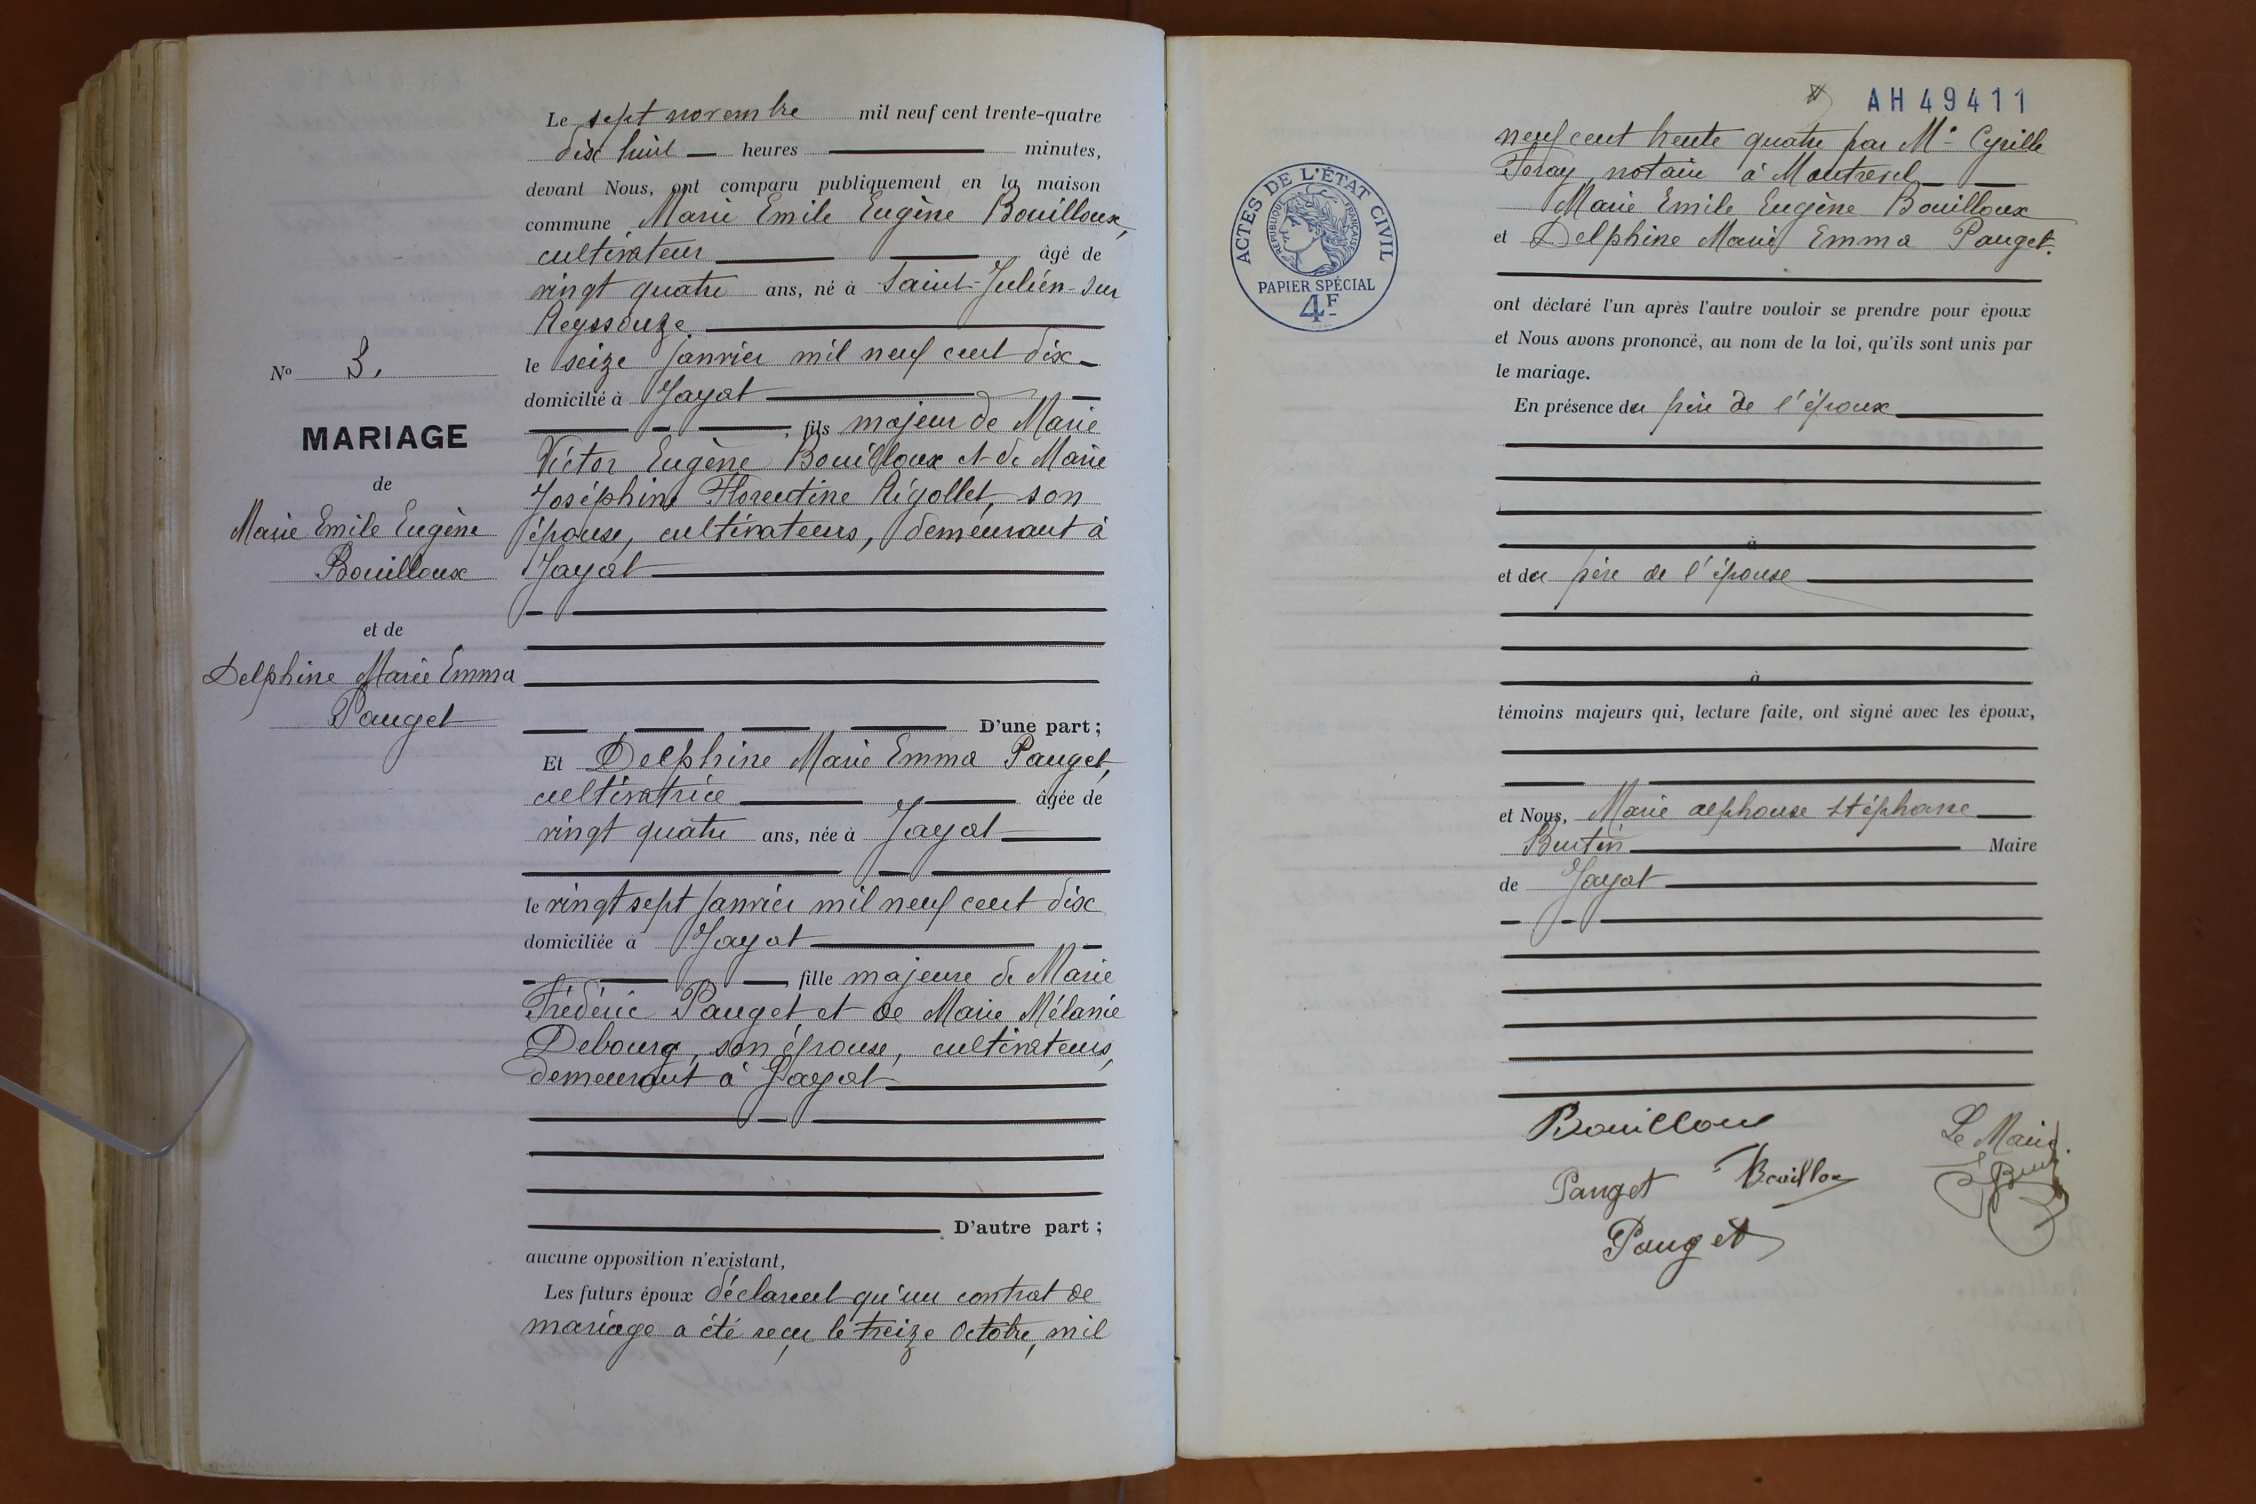 Le sept novembre mil neuf cent trente-quatre
dix huit heures minutes,
devant Nous, ont comparu publiquement en la maison
commune Marie Emile Eugène Bouilloux,
cultivateur âgé de
vingt quatre ans, né à Saint-Julien-sur
Reyssouze
le seize janvier mil neuf cent dix
domicilié à Jayat
, fils majeur de Marie
Victor Eugène Bouilloux et de Marie
Joséphine Florentine Rigollet, son
épouse, cultivateurs, demeurant à
Jayat
D'une part ;
Et Delphine Marie Emma Pauget,
cultivatrice âgée de
vingt quatre ans, née à Jayat
le vingt sept janvier mil neuf cent dix
domiciliée à Jayat
, fille majeure de Marie
Frédéric Pauget et de Marie Mélanie
Debourg, son épouse, cultivateurs,
demeurant à Jayat
D'autre part ;
aucune opposition n'existant,
Les futurs époux déclarent qu'un contrat de
mariage a été reçu le treize octobre, mil
No 3.
MARIAGE
de
Marie Emile Eugène
Bouilloux
et de
Delphine Marie Emma
Pauget
AH 49411
ACTES DE L'ÉTAT CIVIL
RÉPUBLIQUE FRANÇAISE
PAPIER SPÉCIAL
4F
neuf cent trente quatre par Me Cyrille
Foray, notaire à Montrevel
Marie Emile Eugène Bouilloux
et Delphine Marie Emma Pauget.
ont déclaré l'un après l'autre vouloir se prendre pour époux
et Nous avons prononcé, au nom de la loi, qu'ils sont unis par
le mariage.
En présence du père de l'époux
à
et du père de l'épouse
à
témoins majeurs qui, lecture faite, ont signé avec les époux,
et Nous, Marie Alphonse Stéphane
Burtin Maire
de Jayat
Bouilloux
Le Maire
Pauget Bouilloux
Pauget